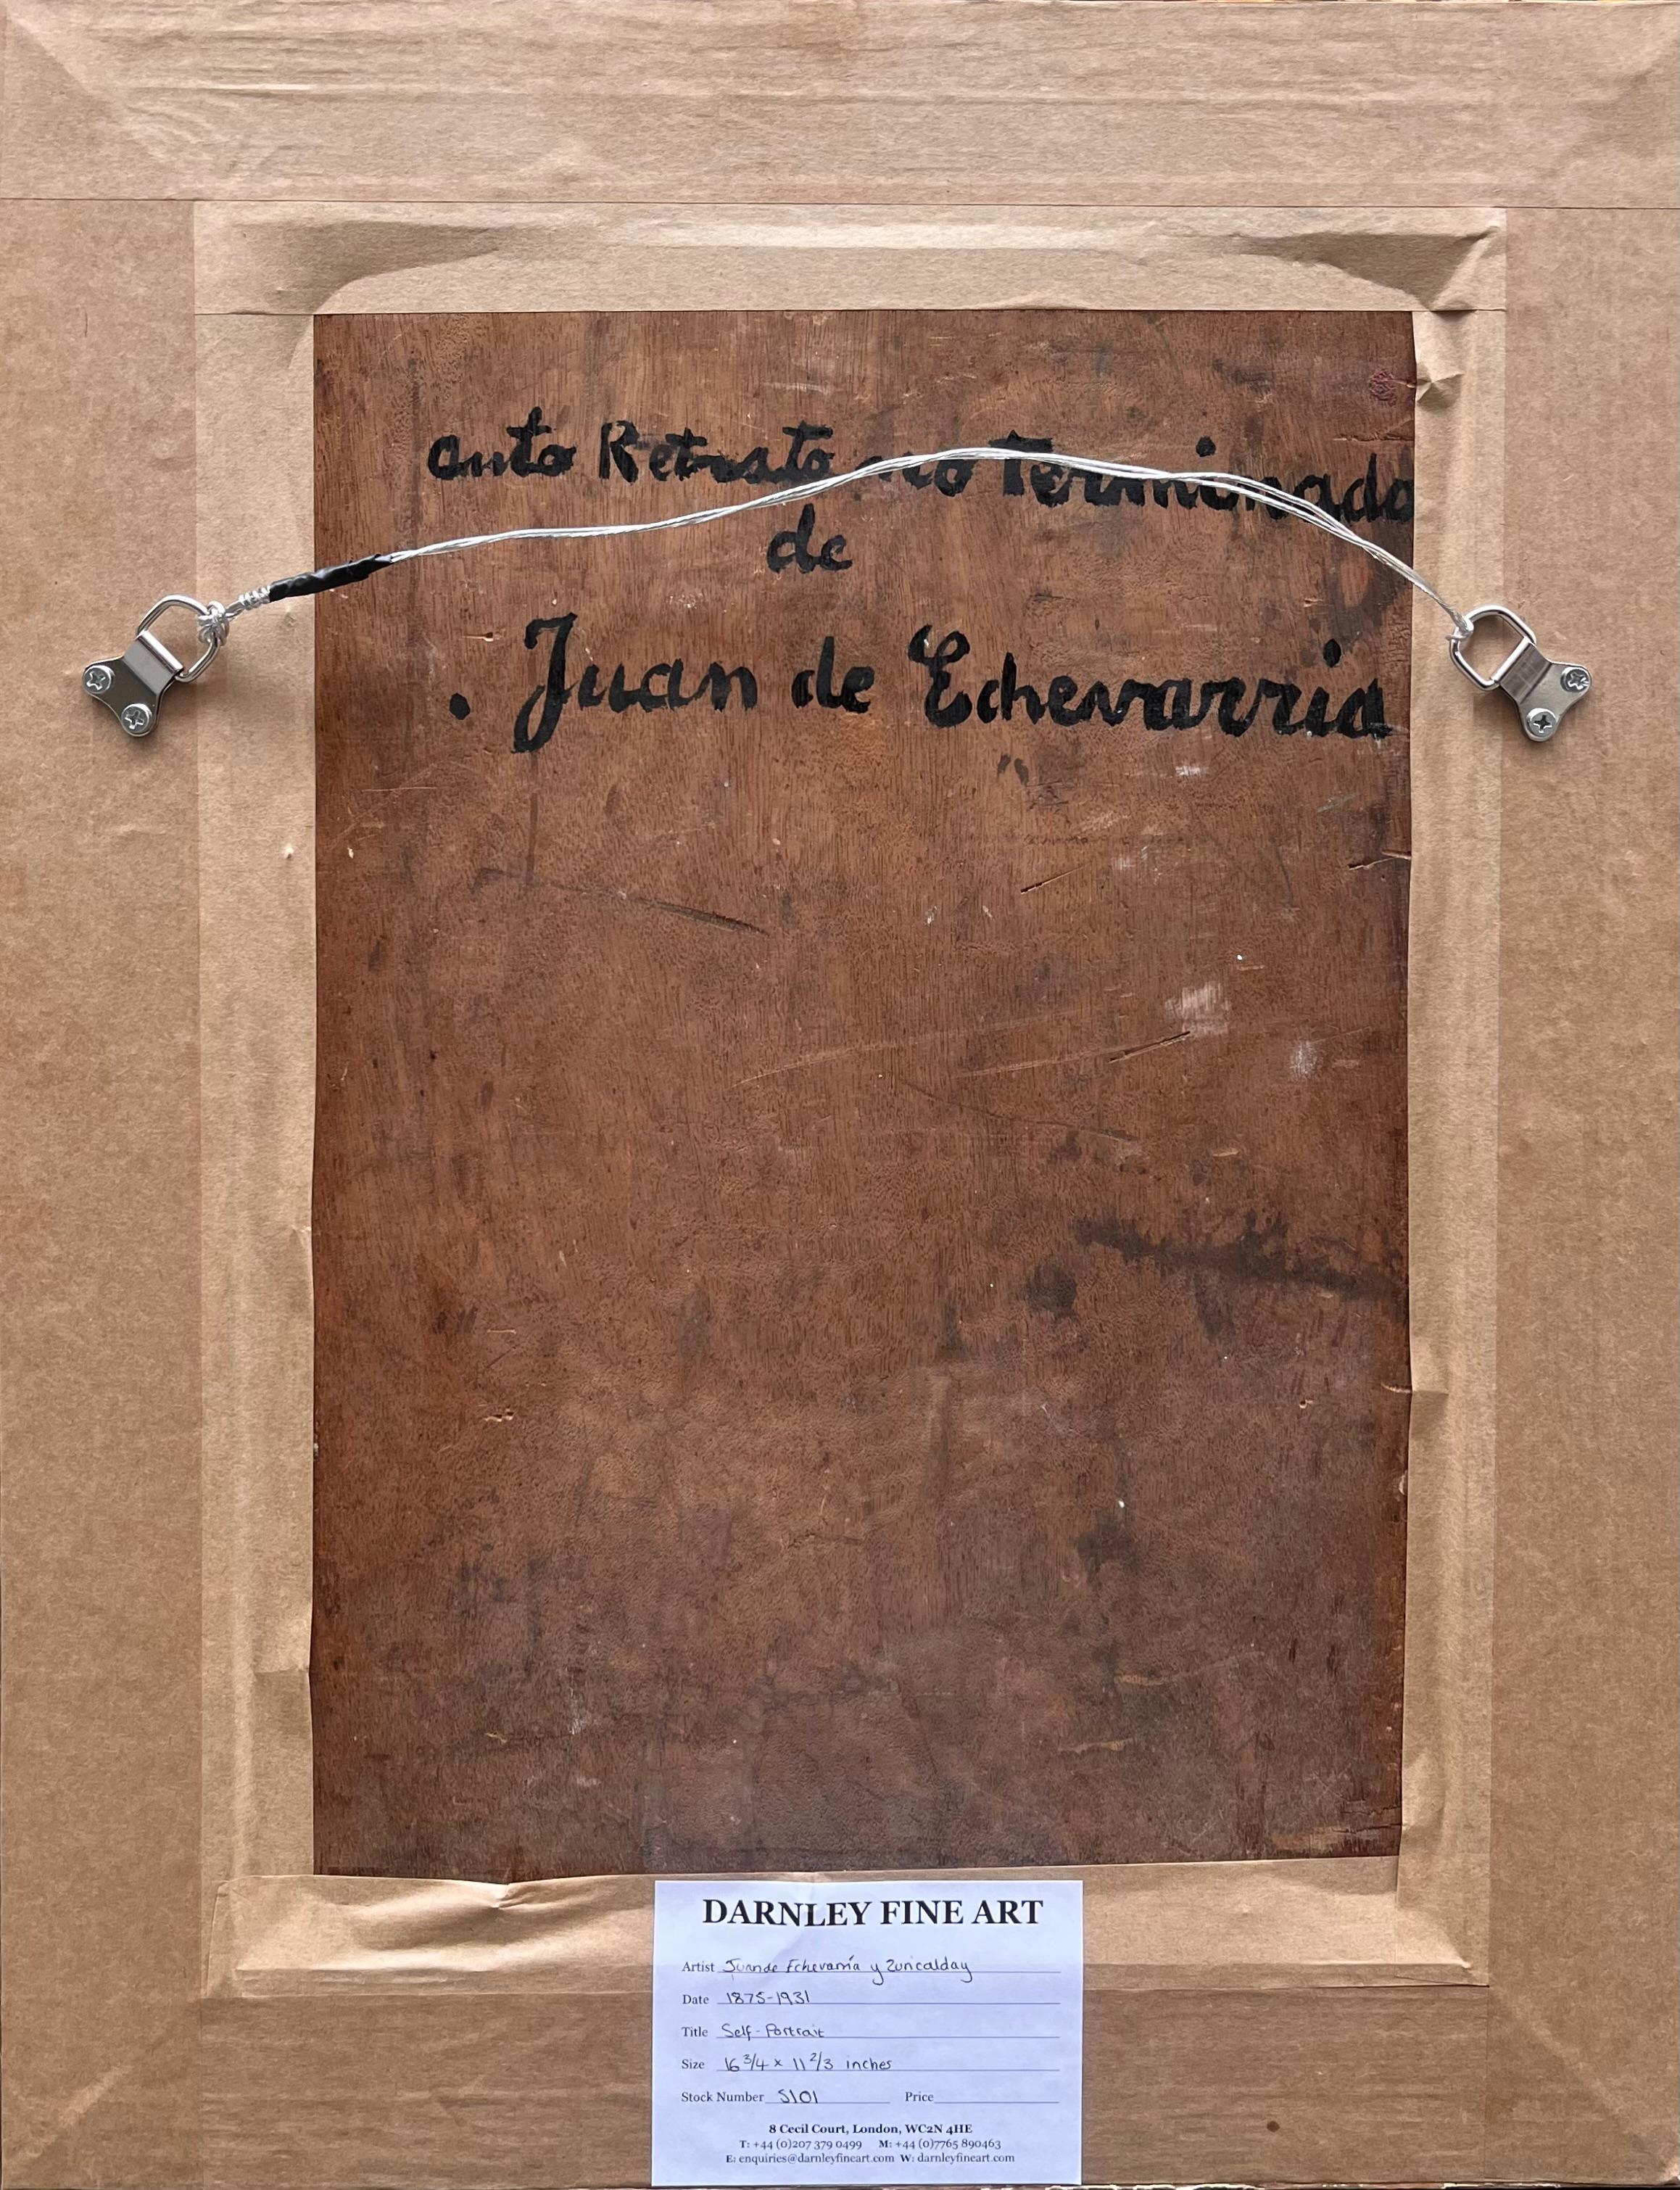 auto Retrato no Terminado
de
. Juan de Echevarria
DARNLEY FINE ART
Artist Juan de Echevarría y Zuricalday
Date 1875-1931
Title Self-Portrait
Size 16 3/4 x 11 2/3 inches
Stock Number S101 Price
8 Cecil Court, London, WC2N 4HE
T: +44 (0)207 379 0499 M: +44 (0)7765 890463
E: enquiries@darnleyfineart.com W: darnleyfineart.com